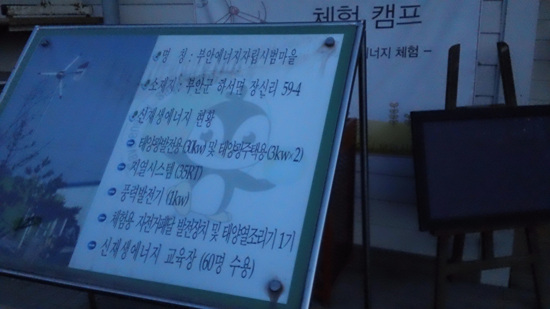 체험 캠프
에너지 체험 -
명 칭 : 부안에너지자립시범마을
소재지 : 부안군 하서면 장신리 59-4
신재생에너지 현황
태양광발전용(30kw) 및 태양광주택용(3kw×2)
지열시스템 (35RT)
풍력발전기 (1kw)
체험용 자전거페달 발전장치 및 태양열조리기 1기
신재생에너지 교육장 (60명 수용)